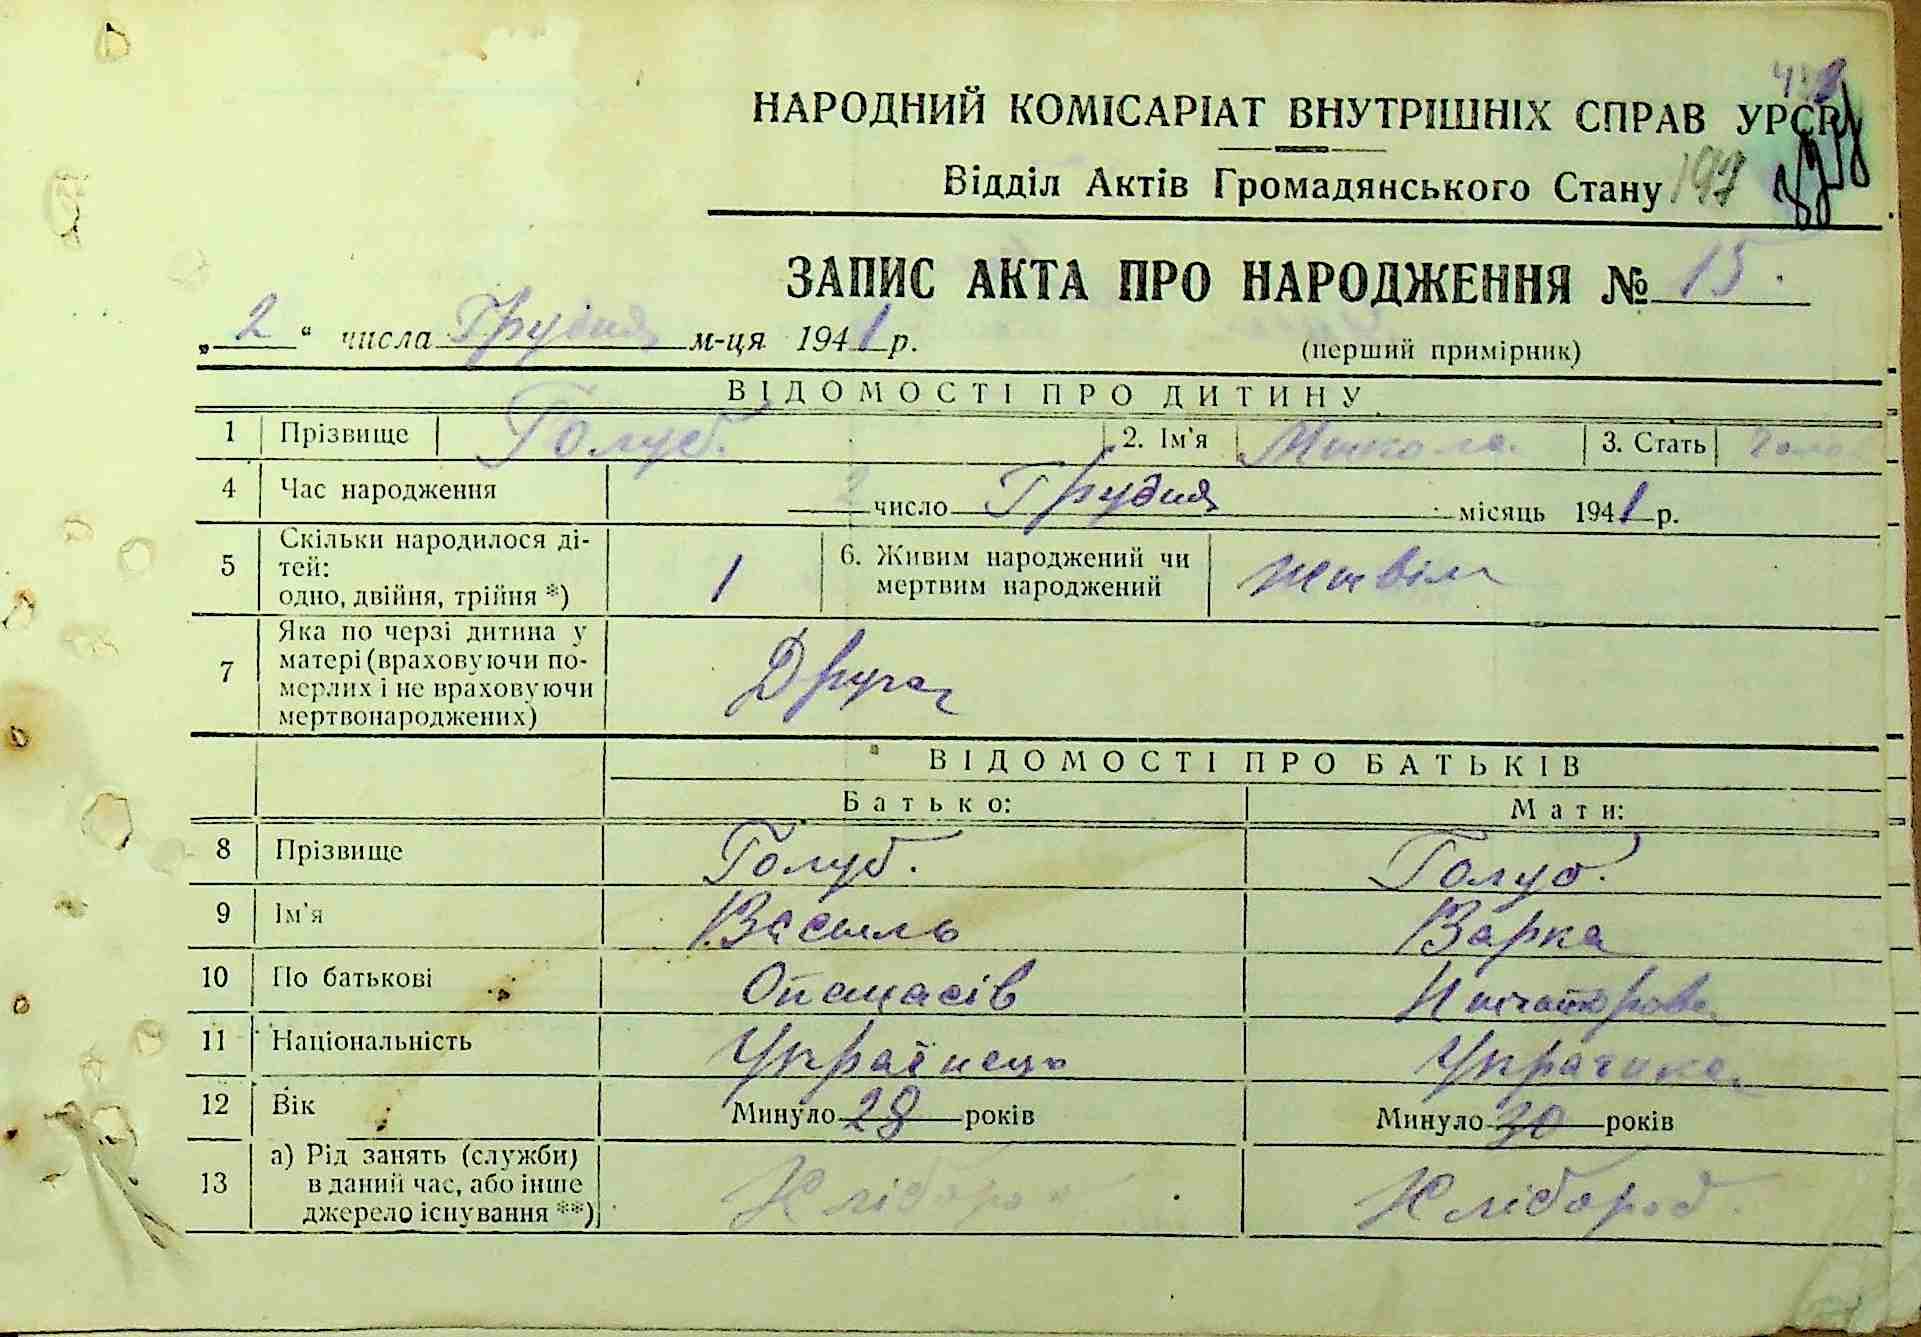 НАРОДНИЙ КОМІСАРІАТ ВНУТРІШНІХ СПРАВ УРСР
Відділ Актів Громадянського Стану 197
ЗАПИС АКТА ПРО НАРОДЖЕННЯ № 15.
„2“ числа Грудня м-ця 1941 р.
(перший примірник)
ВІДОМОСТІ ПРО ДИТИНУ
1 Прізвище Голуб. 2. Ім'я Микола. 3. Стать
4 Час народження 2 число Грудня місяць 1941 р.
5 Скільки народилося ді-
тей:
одно, двійня, трійня *) 1 6. Живим народжений чи
мертвим народжений живім
7 Яка по черзі дитина у
матері (враховуючи по-
мерлих і не враховуючи
мертвонароджених) Друга
ВІДОМОСТІ ПРО БАТЬКІВ
Батько: Мати:
8 Прізвище Голуб. Голуб.
9 Ім'я Василь Варка
10 По батькові Опанасів
11 Національність Українець Українка
12 Вік Минуло 28 років Минуло 30 років
13 а) Рід занять (служби)
в даний час, або інше
джерело існування **) Хлібороб Хлібороб.